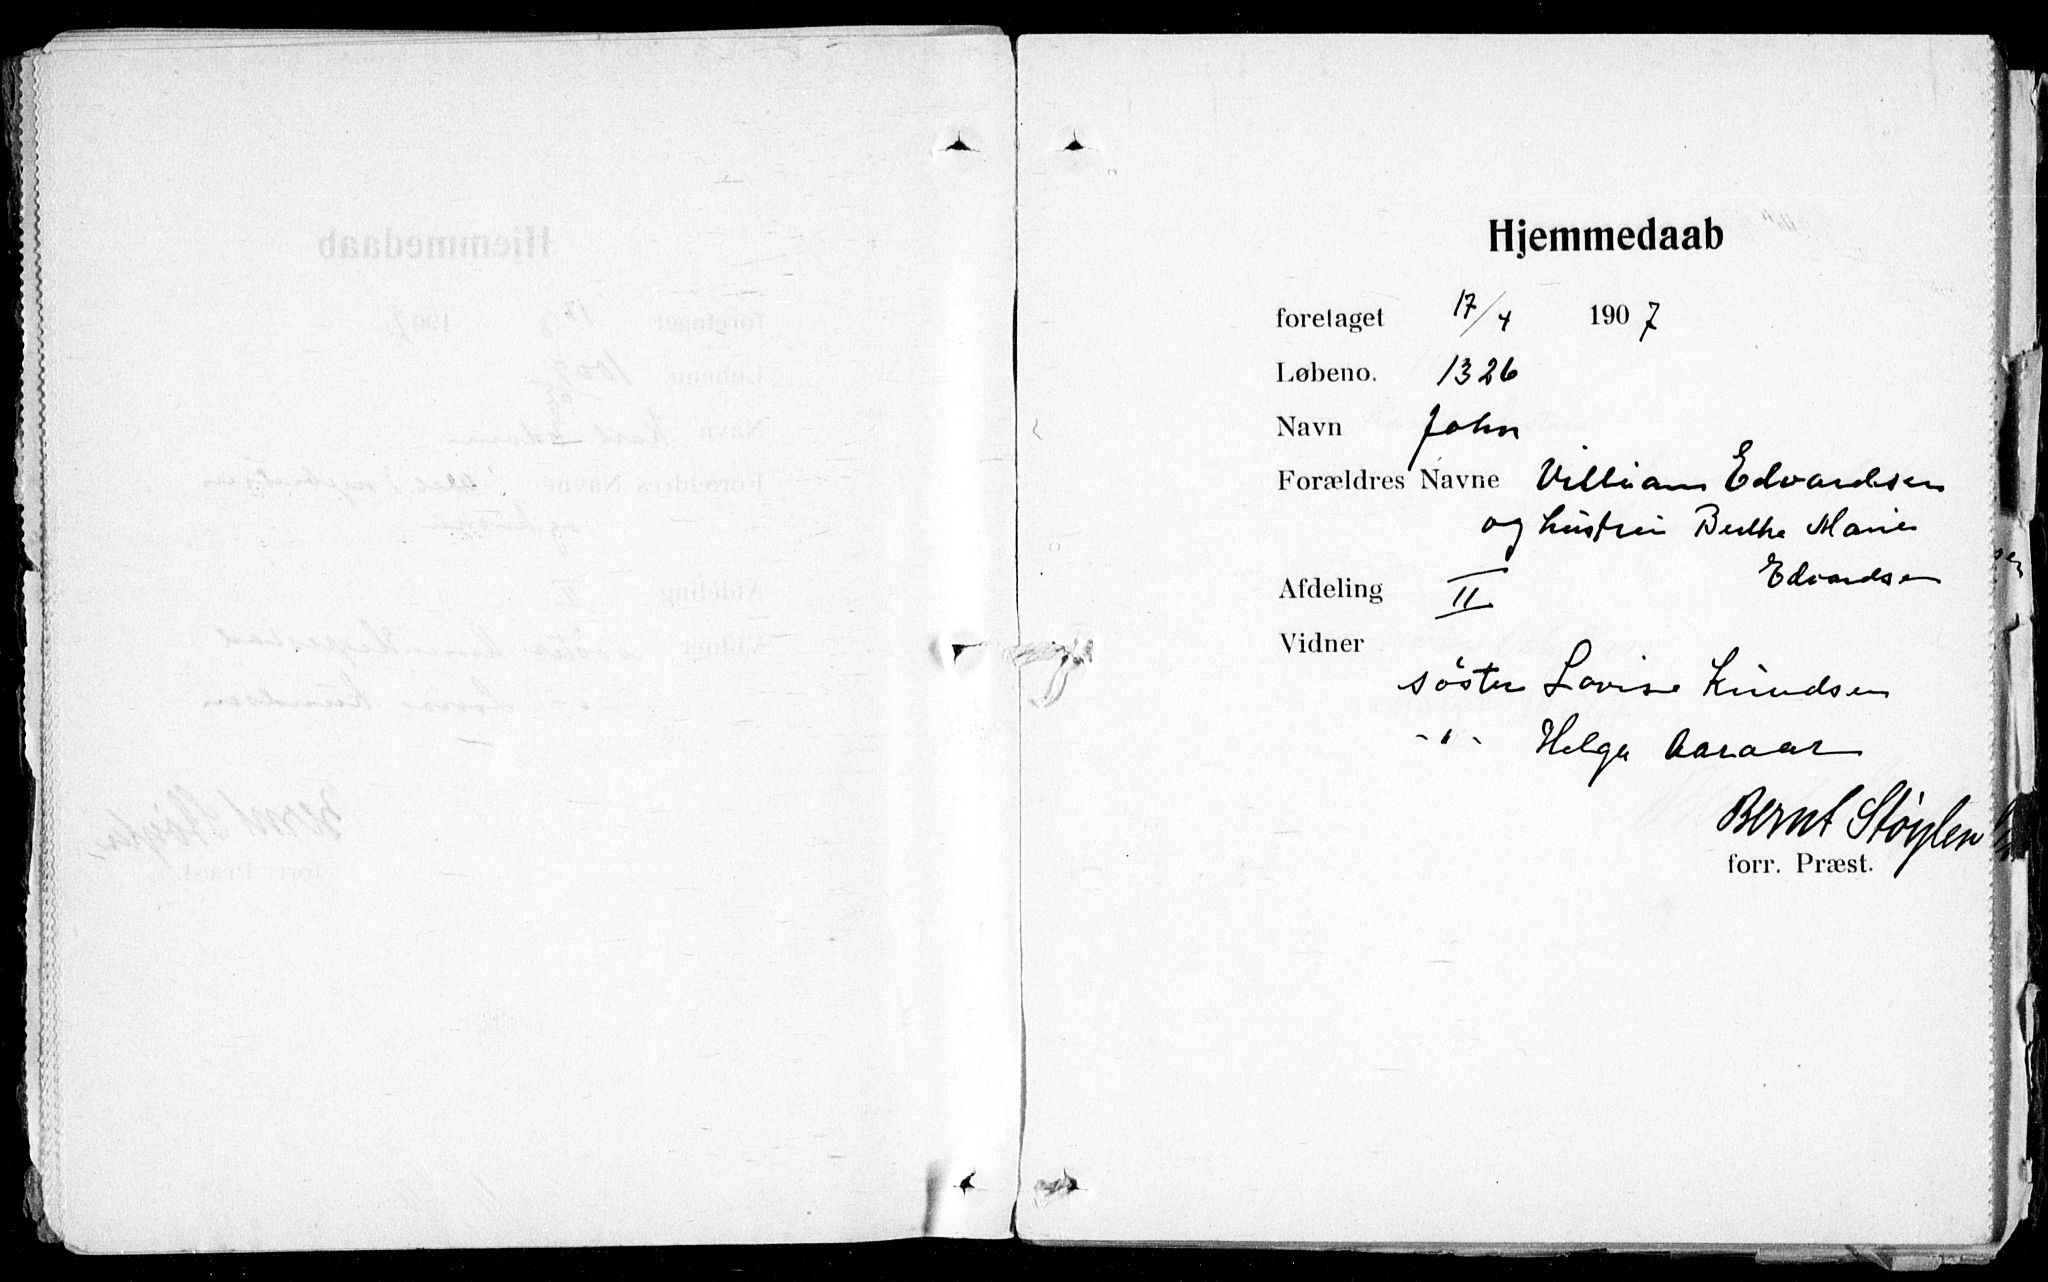 Hjemmedaab
foretaget 17/4 1907
Løbeno. 1326
Navn John
Forældres Navne Villiam Edvardsen
og hustru Berthe Marie
Edvardsen
Afdeling II
Vidner
søster Lovise Knudsen
-"- Helga Aaraas
Bernt Støylen
forr. Præst.